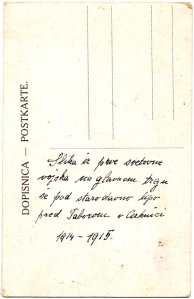 DOPISNICA — POSTKARTE.
Slika iz prve svetovne
vojska na glavnem trgu
in pod starodavno lipo
pred Taborom v Cerknici
1914 - 1915.